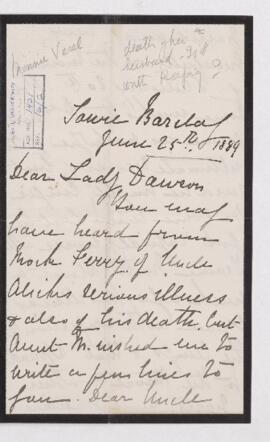 death of her
husband - Gill
Towie Barclay
June 25th 1889
Dear Lady Dawson
You may
have heard from
of Uncle
Alicks serious illness
& also of his death, but
Aunt M. wished me to
write a few lines to
you. Dear Uncle